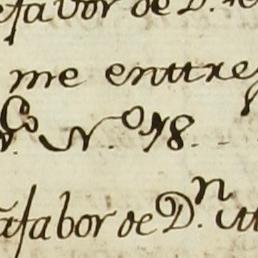 favor de D.
me enttre
Nº 18.
a fabor de D.n